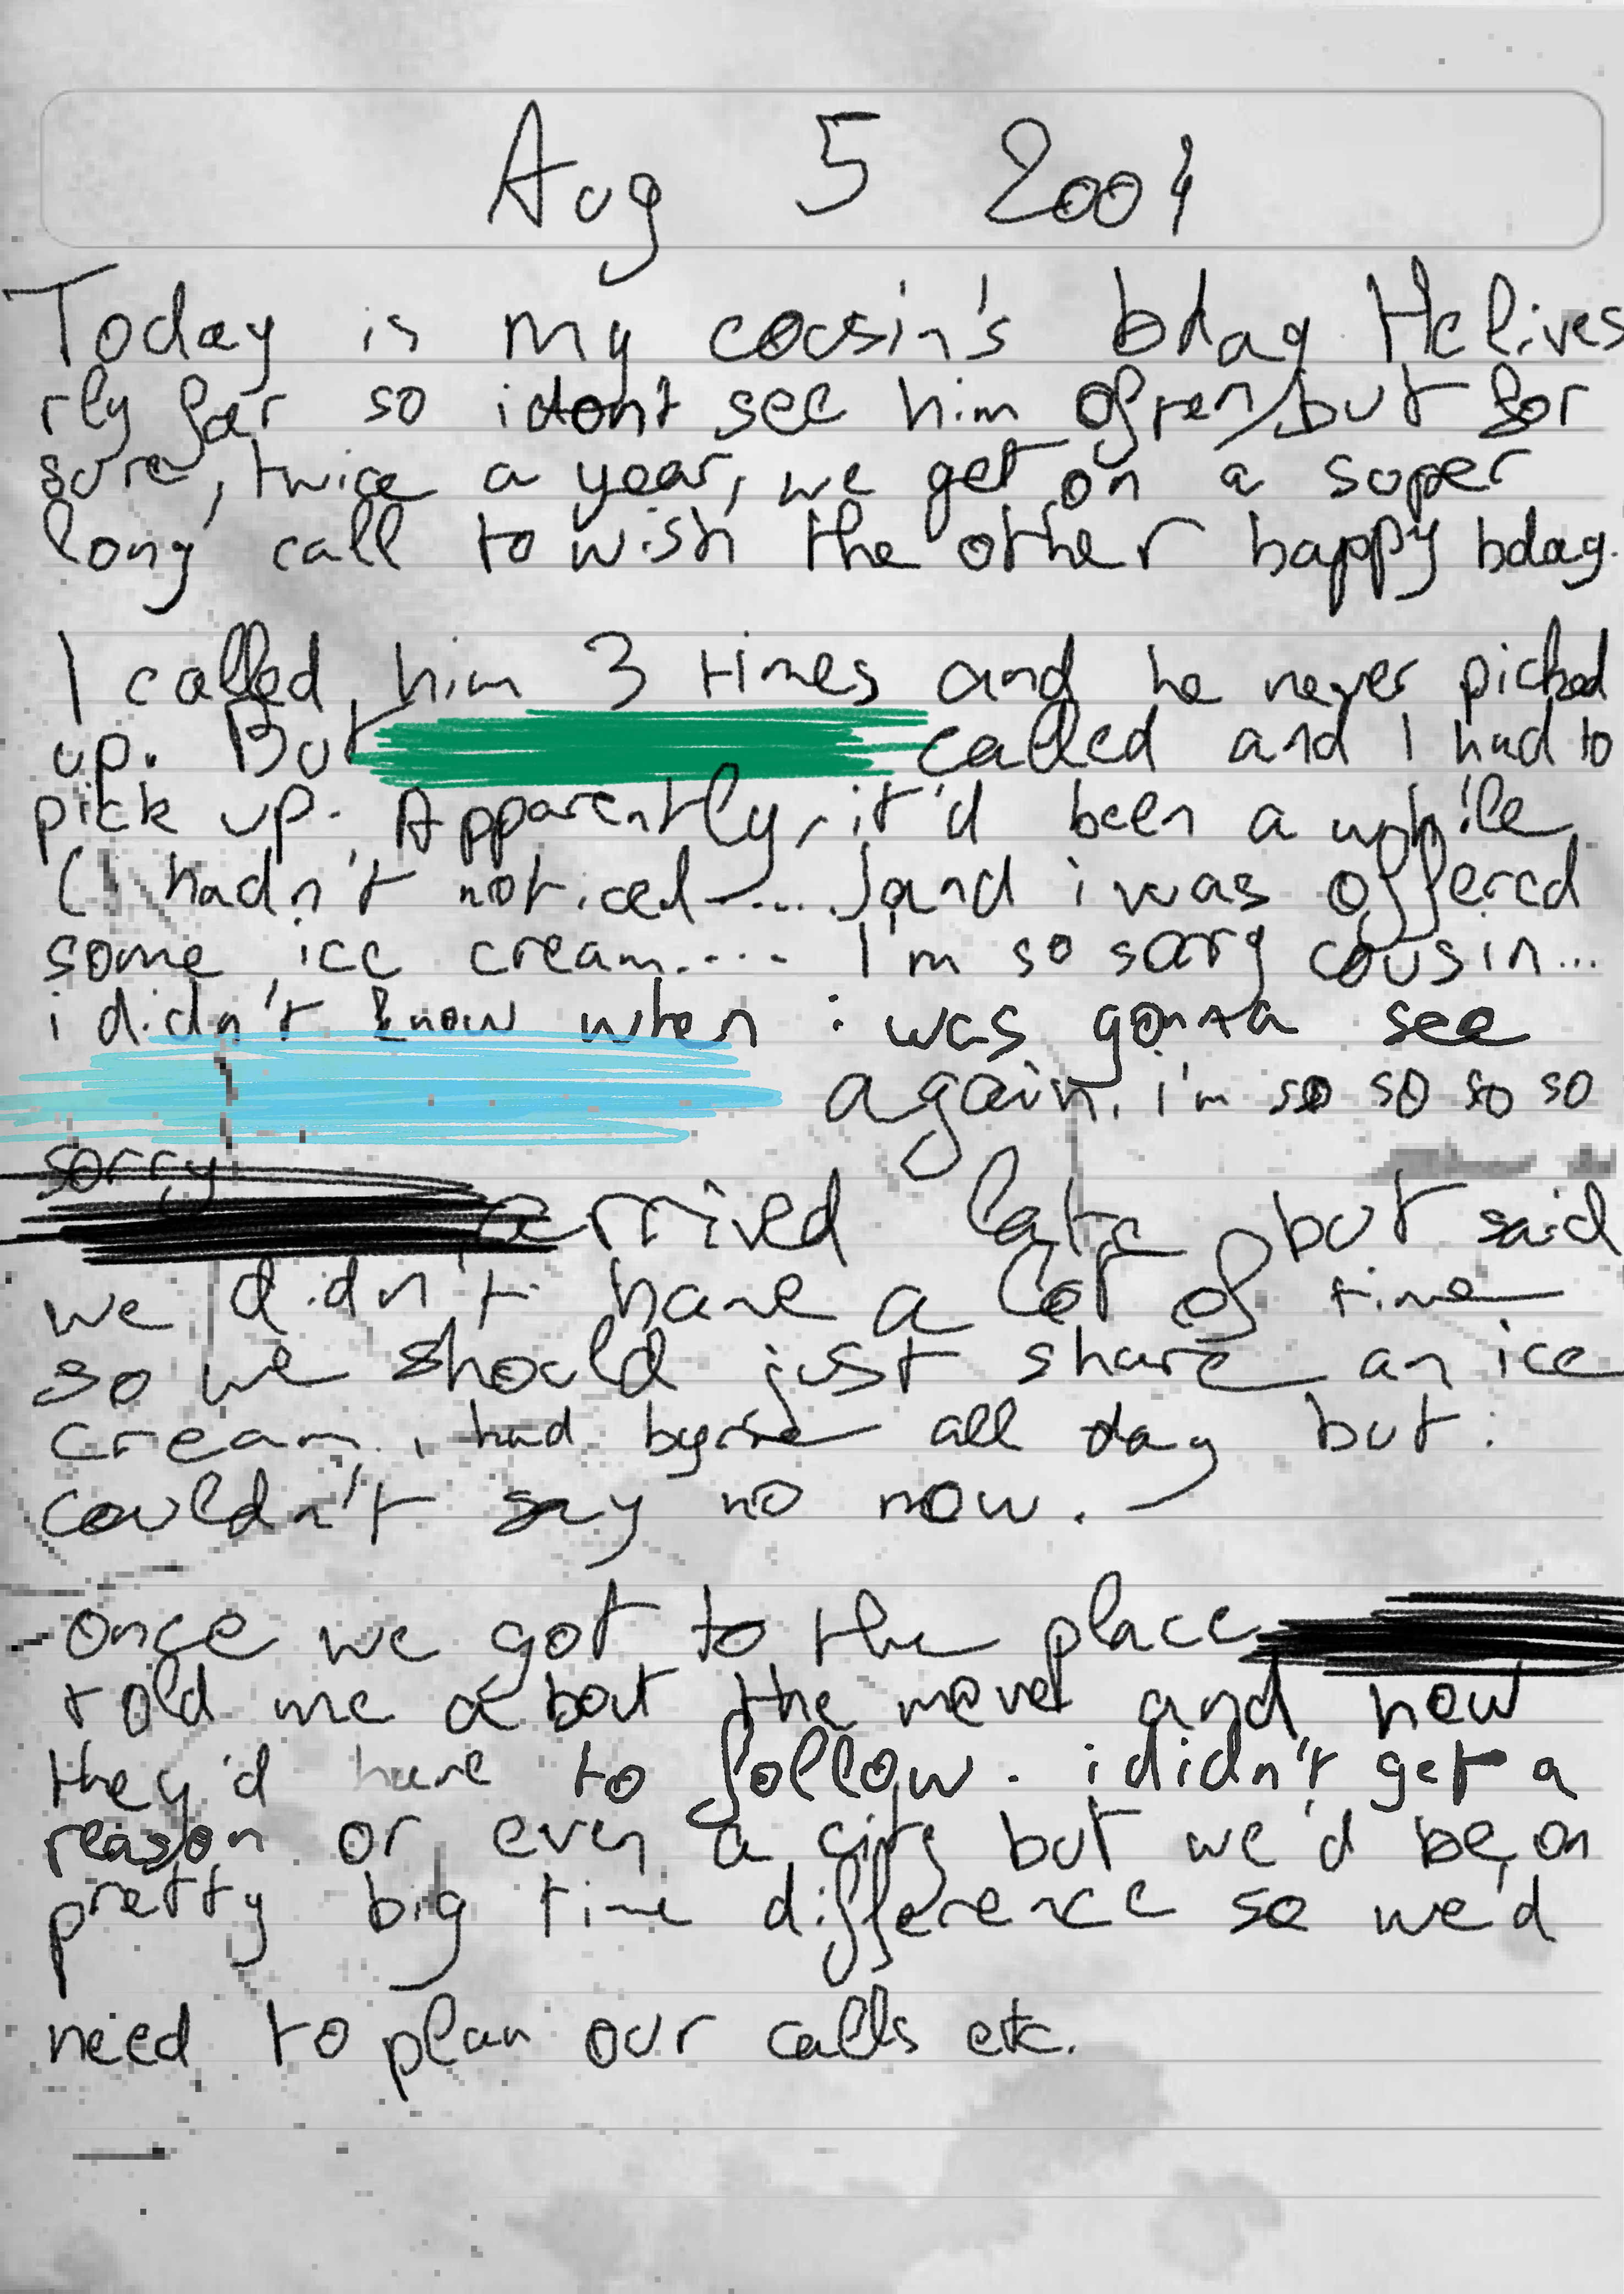 Aug 5 2004
Today is my cousin's bday He lives
rly far so i dont see him often, but for
sure, twice a year, we get on a super
long call to wish the other happy bday.
I called him 3 times and he never picked
up. But called and I had to
pick up. Apparently, it'd been a while
(I hadn't noticed ....) and i was offered
some ice cream.... I'm so sorry cousin...
i didn't know when i was gonna see
again. i'm so so so so
sorry
arrived late but said
we didn't have a lot of time
so we should just share an ice
cream. i had all day but i
couldn't say no now.
once we got to the place
told me about the move and how
they'd have to follow. i didn't get a
reason or even a city but we'd be on
pretty big time difference so we'd
need to plan our calls etc.